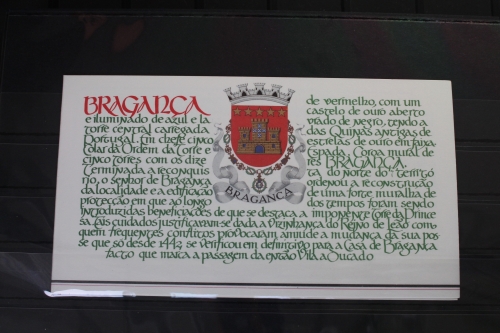 BRAGANÇA de vermelho, com um
castelo de ouro aberto
e iluminado de azul e la vrado de negro, tendo a
torre central carregada das Quinas antigas de
Portugal. Em chefe cinco estrelas de ouro em faixa
Colar da Ordem da Torre e Espada. Coroa mural de
cinco torres com os dize res BRAGANÇA.
Terminada a reconquis ta do norte do territó
rio, o senhor de Bragança ordenou a reconstrução
da localidade e a edificação de uma forte muralha de
protecção em que ao longo dos tempos foram sendo
introduzidas beneficiações de que se destaca a imponente Torre da Prince
sa. Tais cuidados justificaram-se dada a vizinhança do Reino de Leão com
quem frequentes conflitos provocaram amiúde a mudança da sua pos
se que só desde 1442 se verificou em definitivo para a Casa de Bragança
facto que marca a passagem da então Vila a Ducado
BRAGANÇA